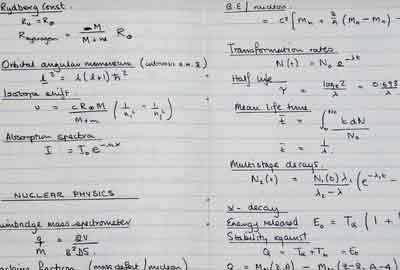 Rydberg Const.
R₀ = R∞
R_hydrogen = M / (M+m) R∞
Orbital angular momentum
l² = l(l+1)ħ²
Isotope shift
ν = cR∞M / (M+m) (1/n₁² − 1/n₂²)
Absorption spectra
I = I₀e
NUCLEAR PHYSICS
Bainbridge mass spectrometer
q/m = 2V / B²DS
fraction (mass defect / nucleon)
B.E / nucleon
Transformation rates
N(t) = N₀e^−λt
Half life
τ = log_e 2 / λ = 0.693 / λ
Mean life time
t̄ = ∫₀^N₀ t dN / N₀
t̄ = 1/λ
Multistage decays.
N₂(t) = N₁(0)λ₁ / (λ₂ − λ₁) (e^−λ₁t −
α - decay
Energy released E₀ = Tα (1 +
Stability against
Q = Tα + T = E₀